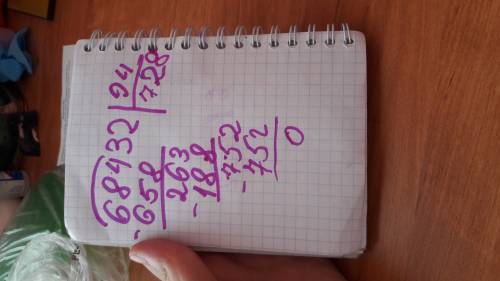 68432 | 94
-658 | 728
263
-188
752
-752
0